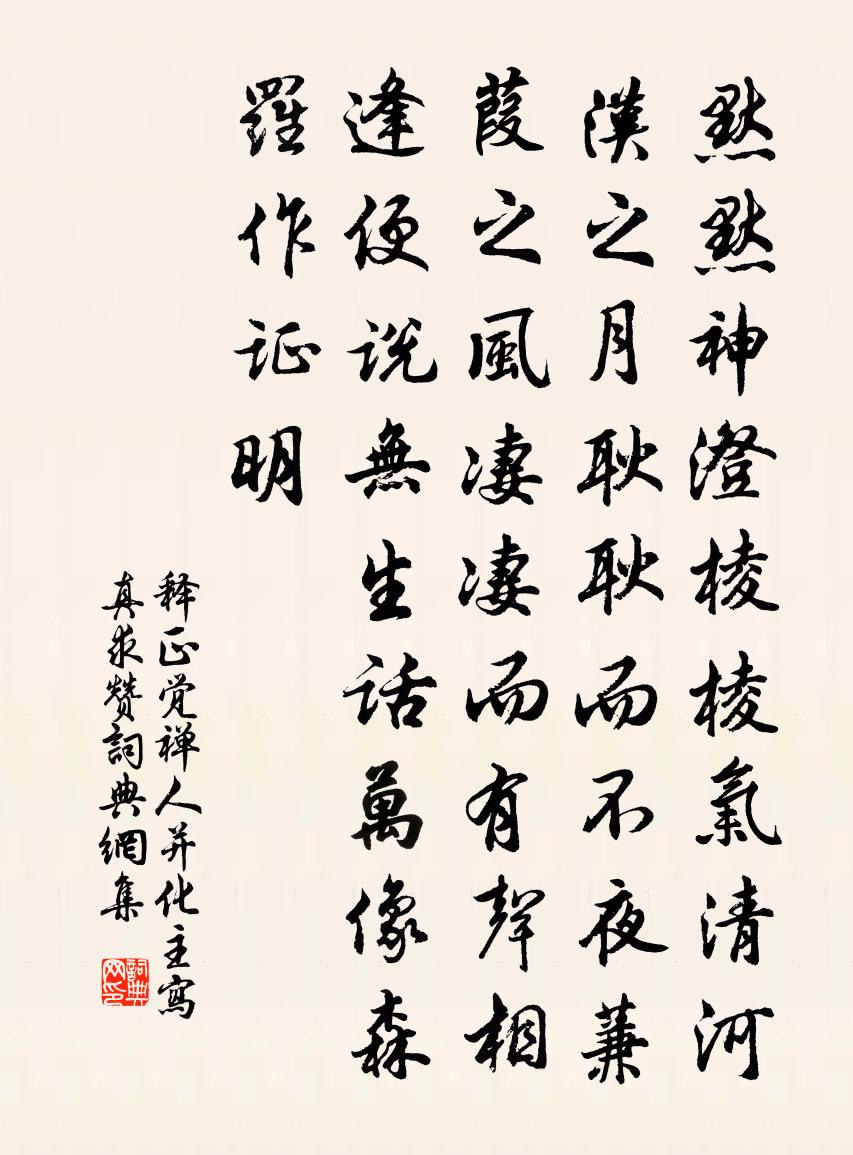 默默神澄棱棱氣清河
漢之月耿耿而不夜蒹
葭之風凄凄而有聲相
逢便說無生話萬像森
羅作证明
释正觉禅人并化主寫
真求赞詞典網集
詞典網印